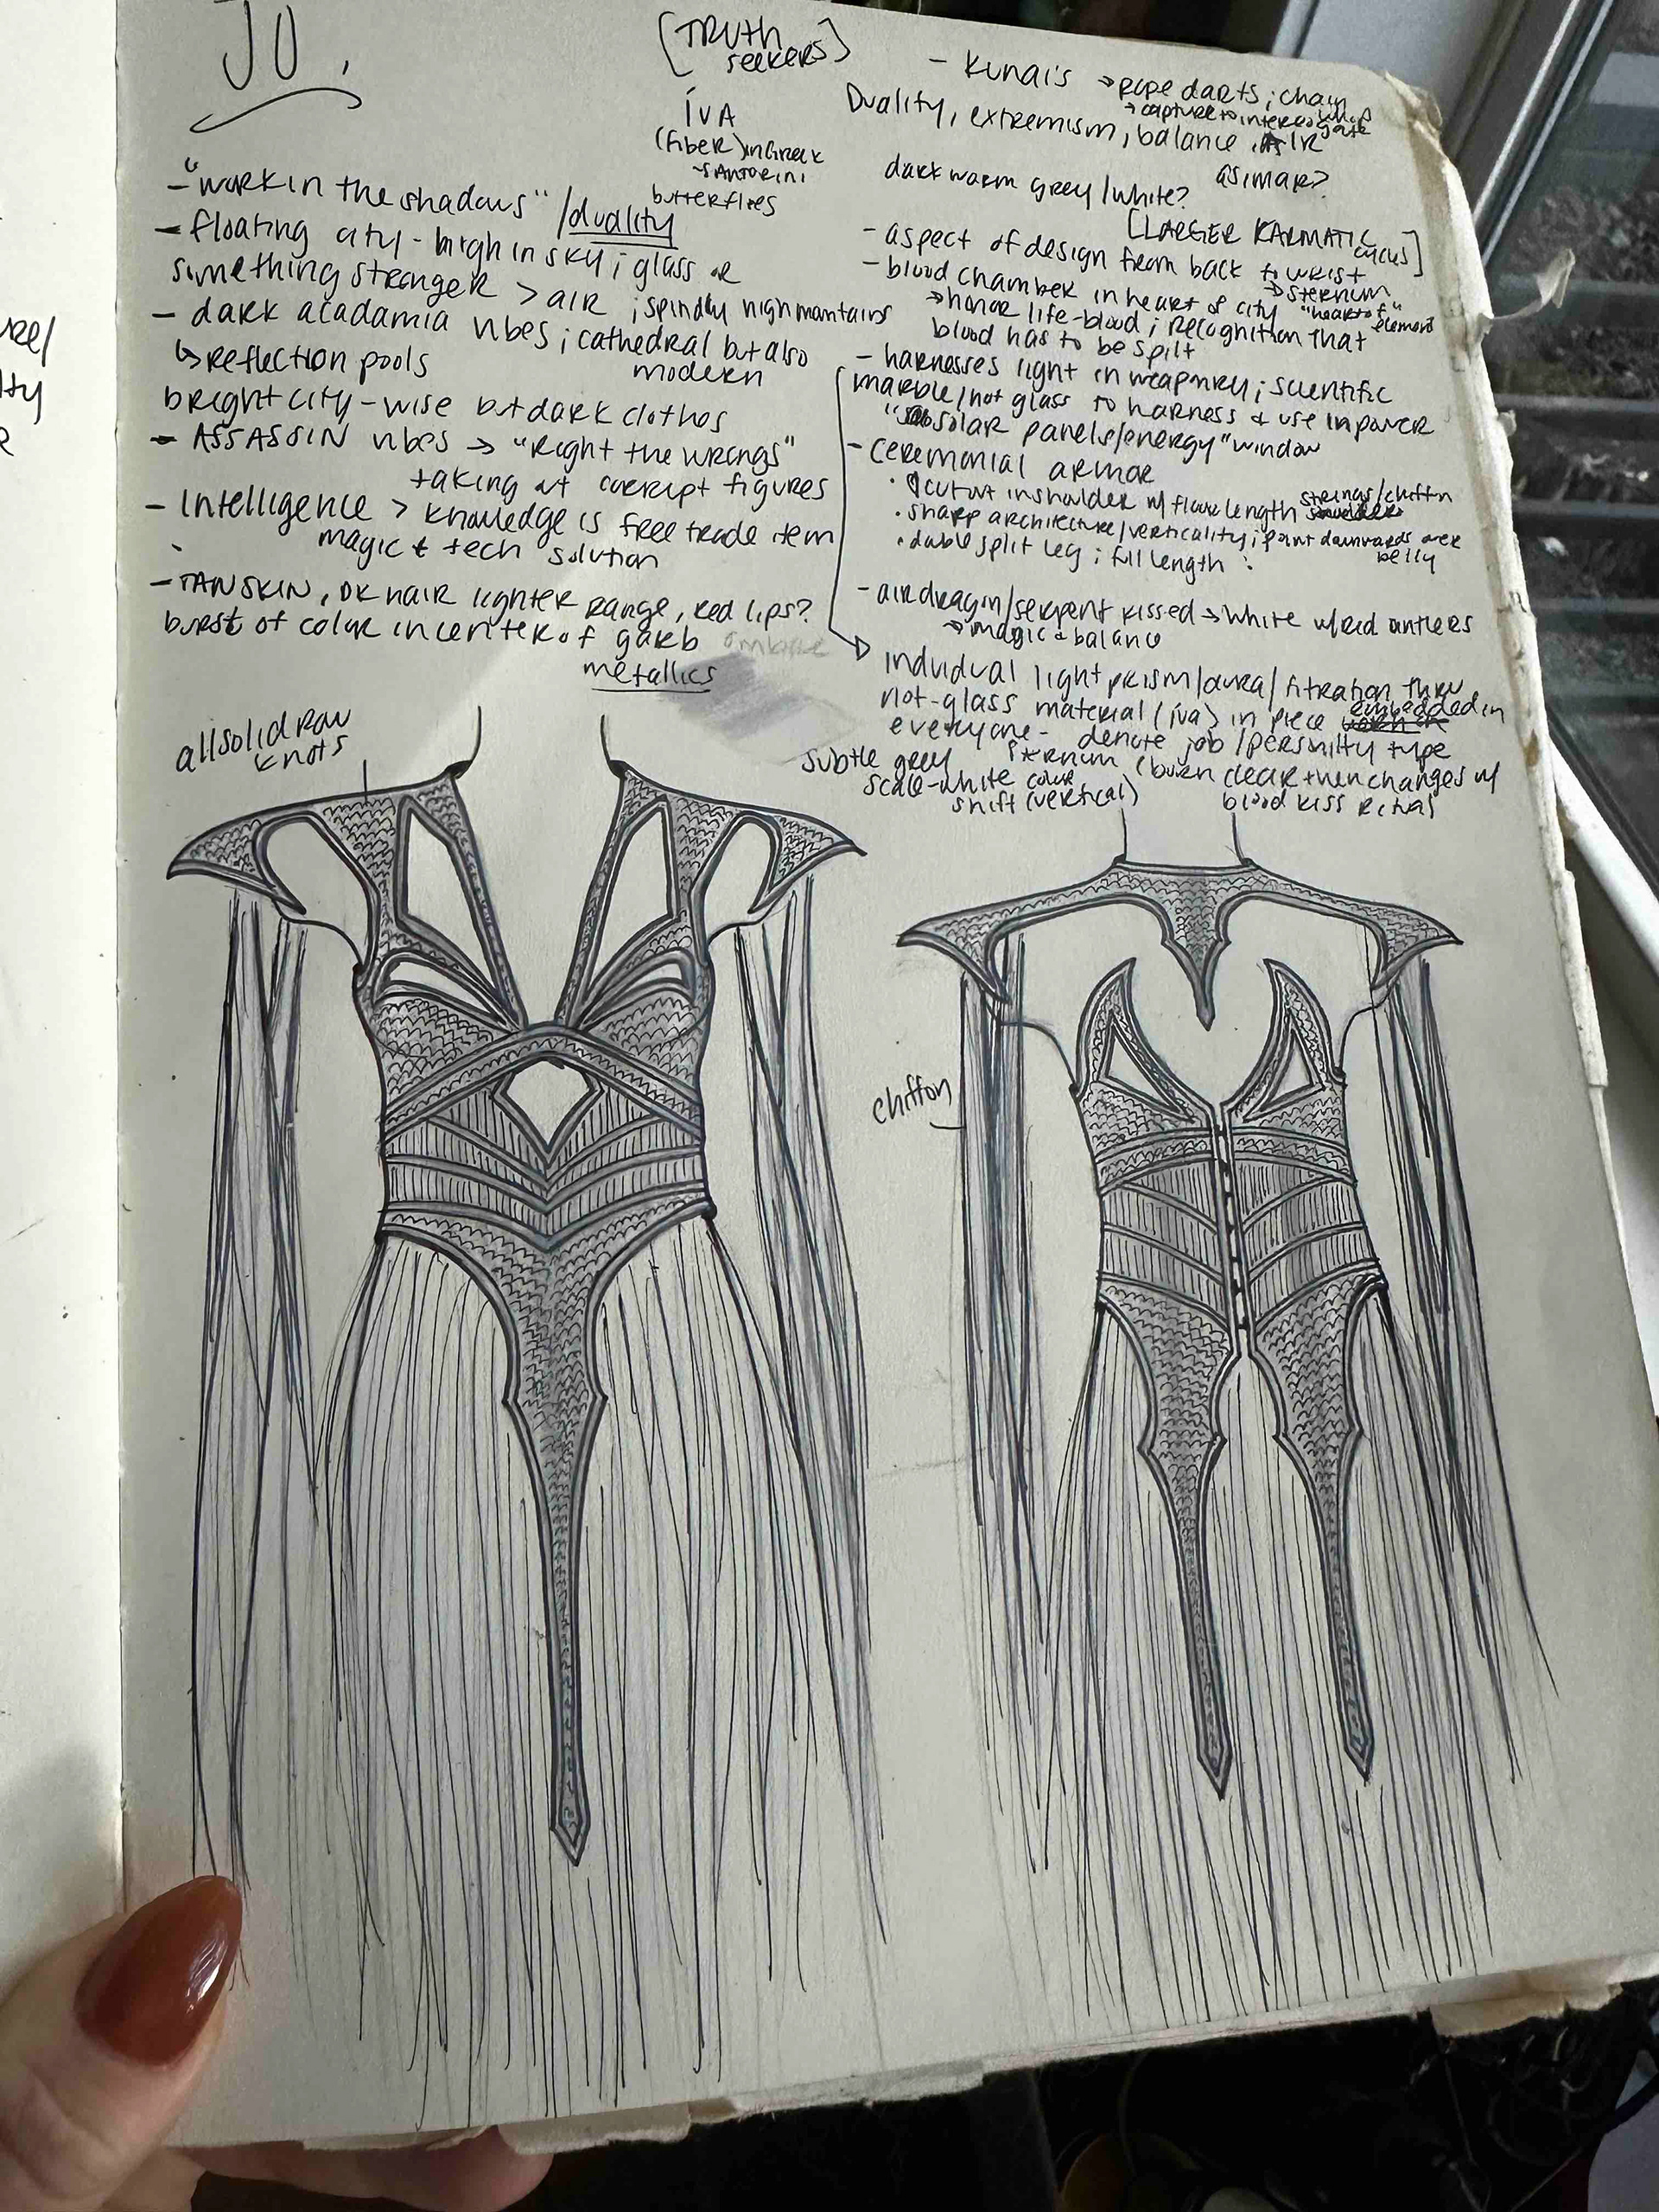 JO.
[TRUTH
seekers]
ÍVA
(fiber) in Greek
→ SANTORINI
butterflies
- "work in the shadows" /duality
- floating city - high in sky; glass or
something stronger > air ; spindly high mountains
- dark acadamia vibes ; cathedral but also
modern
↳ reflection pools
bright city-wise but dark clothes
- ASSASSIN vibes → "Right the wrongs"
taking out corrupt figures
- Intelligence > knowledge is free trade item
magic & tech solution
- TAN SKIN, DK hair lighter range, red lips?
burst of color in center of garb ombre
metallics
all solid raw
knots
- Kunai's → rope darts ; chain
→ capture to
Duality, extremism, balance AIR
dark warm grey/white? asimar?
[LARGER KARMATIC
cycles]
- aspect of design from back to wrist
→ sternum
- blood chamber in heart of city "heart of"
element
→ honor life-blood ; recognition that
blood has to be spilt
- harnesses light in weaponry ; scientific
marble/not glass to harness & use in power
"solar panels/energy" window
- ceremonial armor
• cutout in shoulder w/ floor length strings/chiffon
• sharp architecture/verticality ; point downwards over
belly
• double split leg ; full length
- air dragon/serpent kissed → white w/red antlers
→ magic & balance
individual light prism/aura/filtration thru
not-glass material (iva) in piece embedded in
everyone - denote job/personilty type
sternum (born clear + then changes w/
blood kiss ritual
subtle grey
scale-white color
shift (vertical)
chiffon